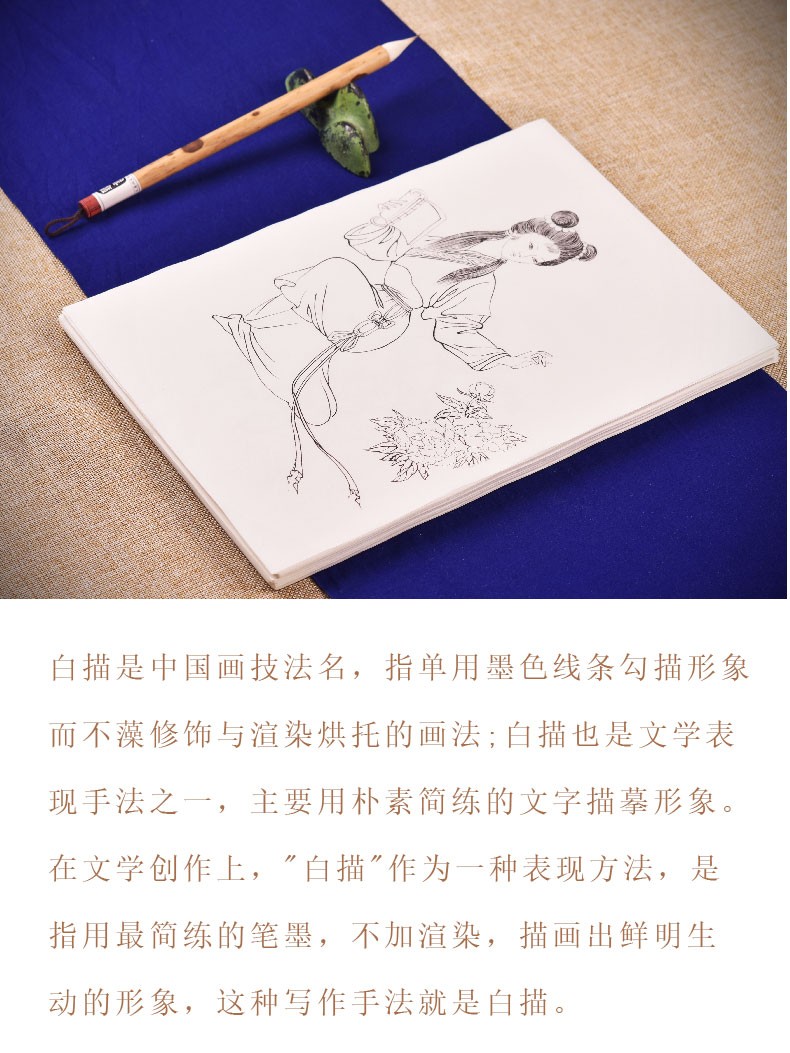 白描是中国画技法名，指单用墨色线条勾描形象
而不藻修饰与渲染烘托的画法;白描也是文学表
现手法之一，主要用朴素简练的文字描摹形象。
在文学创作上，"白描"作为一种表现方法，是
指用最简练的笔墨，不加渲染，描画出鲜明生
动的形象，这种写作手法就是白描。